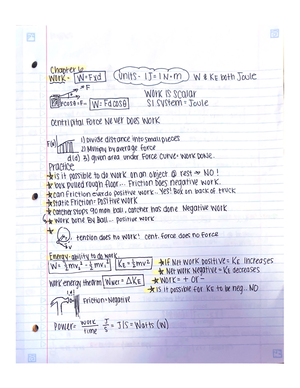 Chapter 6
Work - W=Fxd Units: 1J=1N·m W & KE both Joule
F
Fcosθ=F W=Fdcosθ
Work is scalar
SI system = Joule
Centripital Force Never Does Work
F(N)
1) Divide distance into small pieces
2) Multiply by average force
d(d) 3) given area under Force Curve = work done.
Practice
is it possible to do work on an object @ rest → NO!
box pulled rough floor... Friction does negative work.
can Friction ever do positive work.. Yes! Box on back of truck
Static Friction = Positive work
catcher stops 90 moh ball, catcher has done Negative work
Work done By Ball... positive work
tension does no work! cent. force does no force
Energy - ability to do work
W = ½mv₂² - ½mv₁² KE = ½mv²
If Net work positive = KE increases
Net work negative = KE decreases
work energy theorem WNET = ΔKE
Work = + or -
Is it possible for KE to be neg.. NO
Friction = Negative
Power = work/time J/S = J/S = Watts (W)